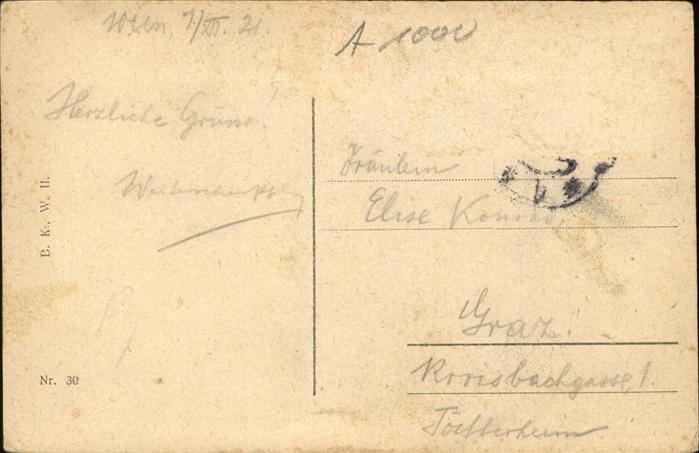 Wien, 7/XII. 21.
A 1000
Herzliche Grüsse!
B. K. W. II.
Nr. 30
Fräulein
Elise Konrad,
Graz!
Kroisbachgasse, 1.
Töchterheim.